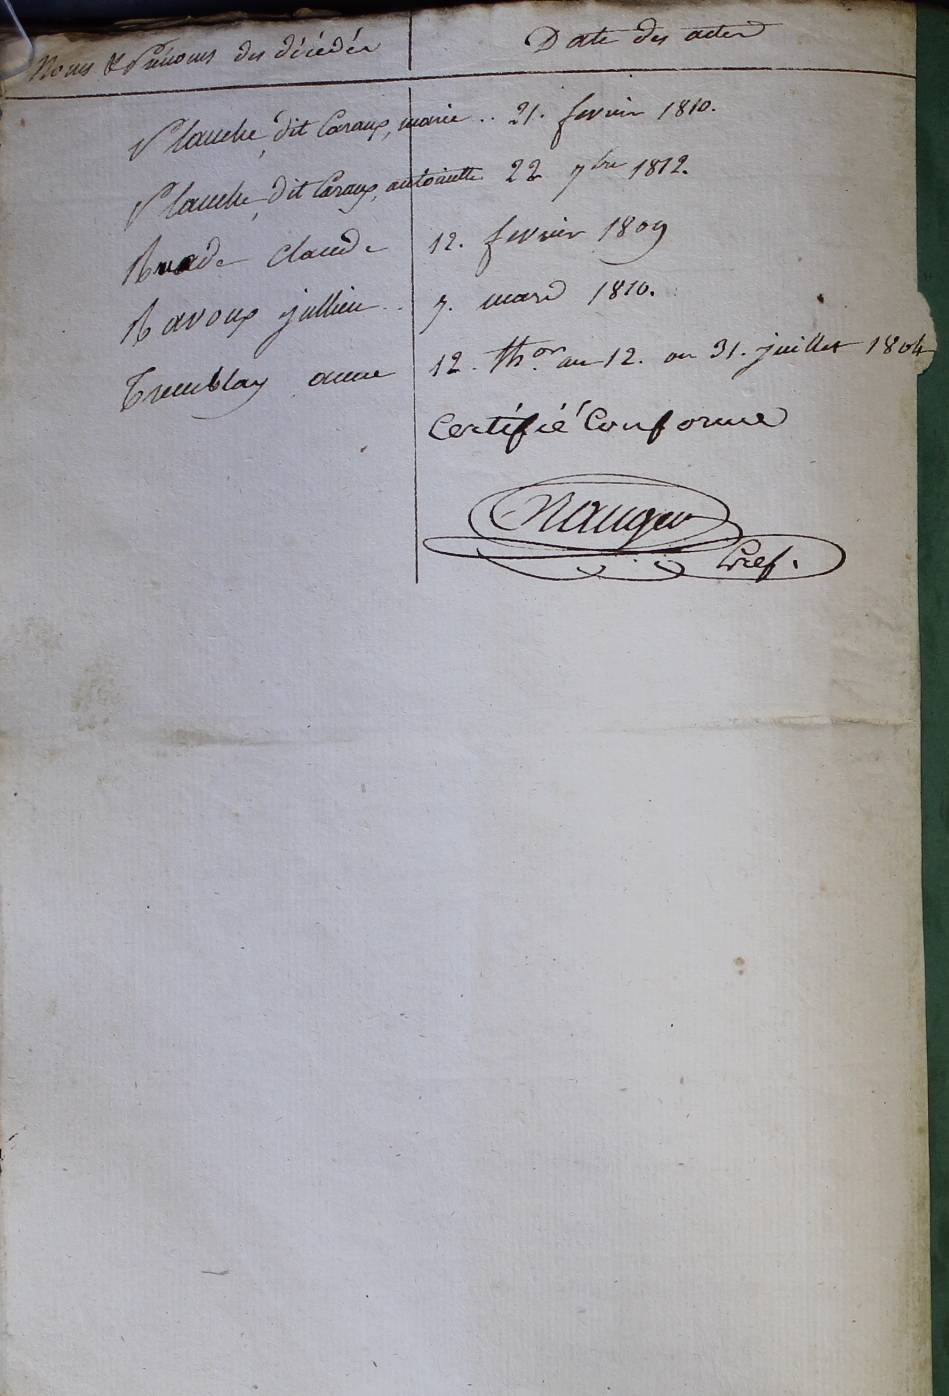 Noms & Prénoms des décédés Date des actes
Planche, dit Caraux, marie .. 21. fevrier 1810.
Planche, dit Caraux, antoinette 22 7bre 1812.
Ruade Claude 12. fevrier 1809
Ravoux jullien .. 7. mars 1810.
Tremblay anne 12. thor. an 12. ou 31. juillet 1804
Certifié Conforme
Gref.